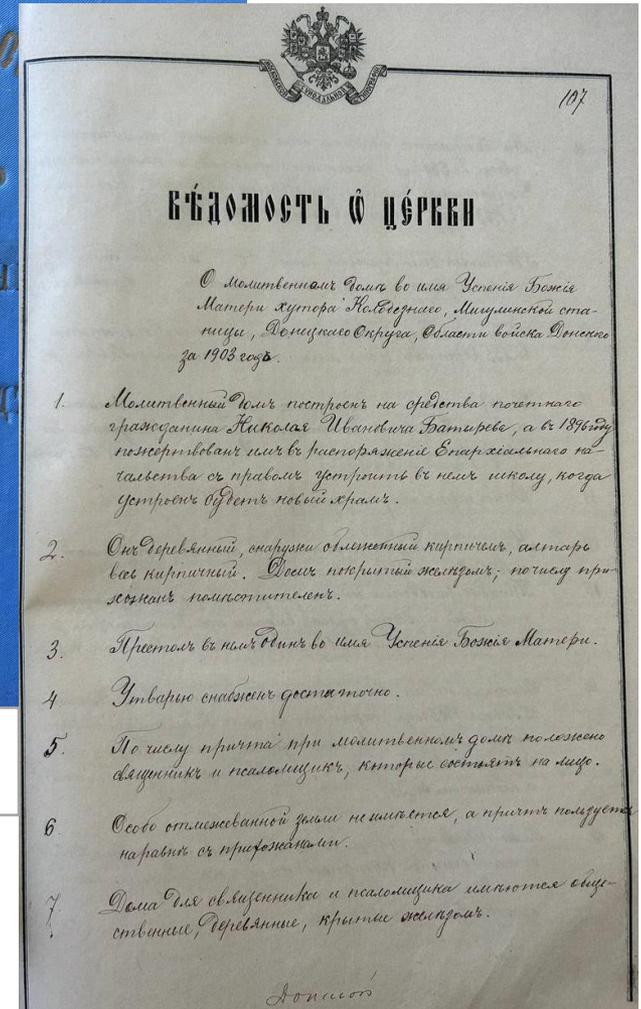 107
ВѢ́ДОМОСТЬ Ѽ ЦЕ́РКВИ
О молитвенномъ домѣ во имя Успенія Божія
Матери хутора Колодезнаго, Мигулинской ста-
ницы, Донецкаго Округа, Области войска Донскаго
за 1903 годъ.
1. Молитвенный домъ построенъ на средства почетнаго
гражданина Николая Ивановича Батырева, а въ 1896 году
пожертвованъ имъ въ распоряженіе Епархіальнаго на-
чальства съ правомъ устроить въ немъ школу, когда
устроенъ будетъ новый храмъ.
2. Онъ деревянный, снаружи обложенный кирпичемъ, алтарь
весь кирпичный. Домъ покрытый желѣзомъ; по числу при-
хожанъ помѣстителенъ.
3. Престолъ въ немъ одинъ во имя Успенія Божіей Матери.
4 Утварью снабженъ достаточно.
5. По числу причта при молитвенномъ домѣ положено
священникъ и псаломщикъ, которые состоятъ на лицо.
6 Особо отмежеванной земли не имѣется, а причтъ пользуется
наравнѣ съ прихожанами.
7. Дома для священника и псаломщика имѣются обще-
ственные, деревянные, крытые желѣзомъ.